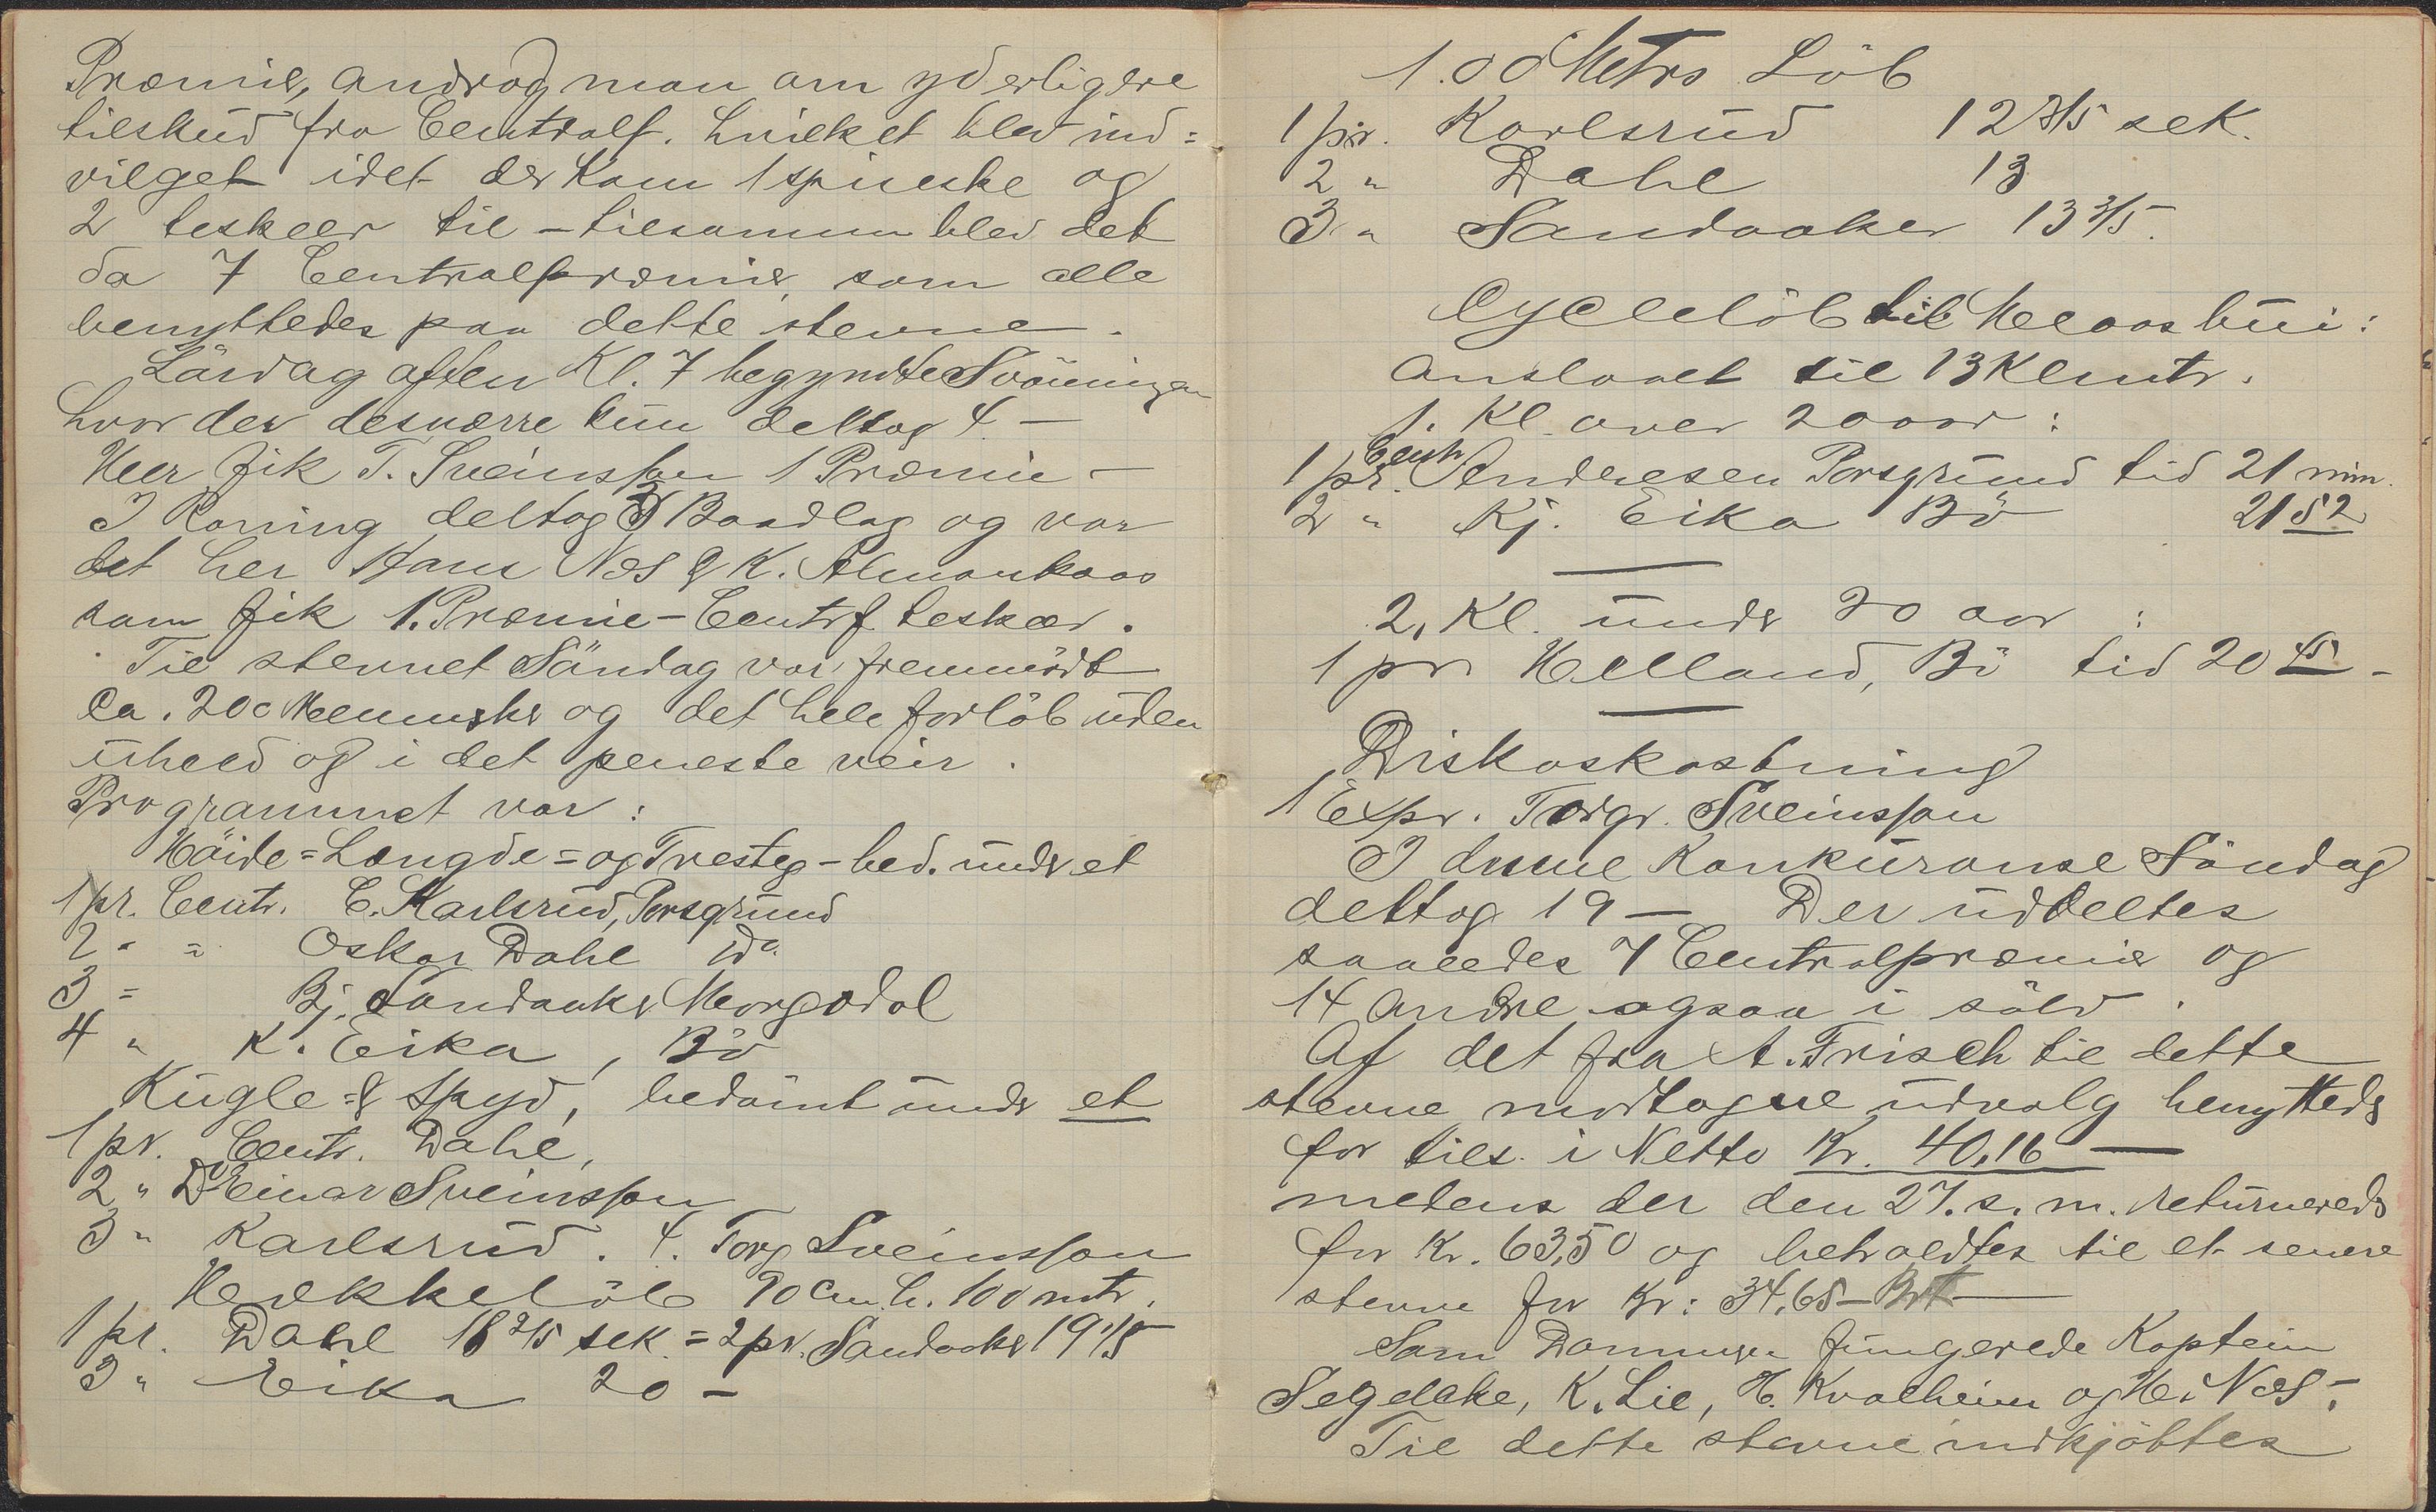 Præmier, androg man om yderligere
tilskud fra Centralf. hvilket blev ind=
vilget idet der kom 1 spiseske og
2 teskeer til - tilsammen blev det
da 7 Centralpræmier som alle
benyttedes paa dette stevne.
Lördag aften Kl. 7 begyndte Svömningen
hvor der desværre kun deltog 4 -
Heer fik T. Sveinsson 1 Præmie -
I Roning deltog 3 Baadlag og var
det her Hans Næs & K.
som fik 1. Præmie - Centrf teskær.
Til stevnet Söndag var fremmödt
Ca. 200 Mennesker og det hele forlöb uden
uheld og i det peneste veir.
Programmet var:
Höide= Længde= og Tresteg - bed. under et
1 pr. Centr. C. Karlsrud, Porsgrund
2 " " Oskar Dahl do.
3 = Bj. Sandaaker Morgedal
4 " K. Eika, Bö
Kugle= & Spyd, bedömt under et
1 pr. Centr. Dahl,
2 " Do Einar Sveinsson
3 " Karlsrud. 4. Torg Sveinsson
Hekkelöb 90 cm. h. 100 mtr.
1 pr. Dahl 18 2/5 sek. = 2 pr. Sandaaker 19 1/5
3 " Eika 20 -
100 Metrs Löb
1 pr. Karlsrud 12 3/5 sek.
2 " Dahl 13
3 " Sandaaker 13 3/5.
Cyclelöb til Melaas bui:
anslaaet til 13 Klmtr.
1. Kl. over 20 aar:
1 pr. Centr Andresen Porsgrund tid 21 min.
2 " Kj. Eika Bö 21 52
2. Kl. under 20 aar:
1 pr. Helland, Bö tid 20 45 -
Diskoskastning
1 Expr. Torgr. Sveinsson
I denne Konkuranse Söndag
deltog 19 - Der uddeltes
saaledes 7 Centralpræmier og
14 andre ogsaa i sölv.
Af det fra A. Frisch til dette
stevne modtagne udvalg benyttedes
for tils. i Netto Kr. 40,16 -
medens der den 27. s. m. returneredes
for Kr. 63,50 og beholdtes til et senere
stevne for Kr: 34,65 -
Som Dommere fungerede Kaptein
Segelcke, K. Lie, H. Kvalheim og H. Næs -.
Til dette stevne indkjöbtes